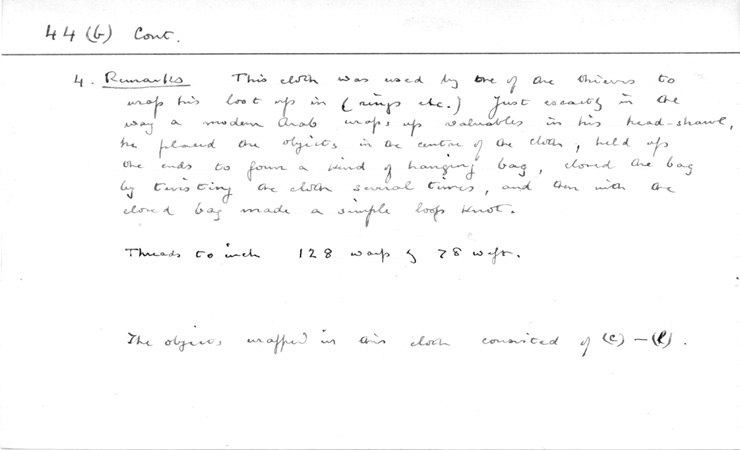 44 (b) Cont.
4. Remarks This cloth was used by one of the thieves to
wrap his loot up in (rings etc.) Just exactly in the
way a modern Arab wraps up valuables in his head-shawl,
he placed the objects in the centre of the cloth, held up
the ends to form a kind of hanging bag, closed the bag
by twisting the cloth several times, and then with the
closed bag made a simple loop knot.
Threads to inch 128 warp & 78 weft.
The objects wrapped in this cloth consisted of (c) — (l).